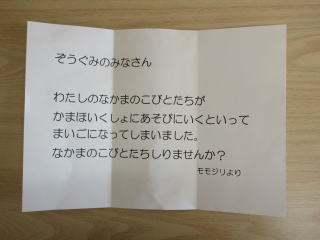 ぞうぐみのみなさん
わたしのなかまのこびとたちが
かまほいくしょにあそびにいくといって
まいごになってしまいました。
なかまのこびとたちしりませんか？
モモジリより